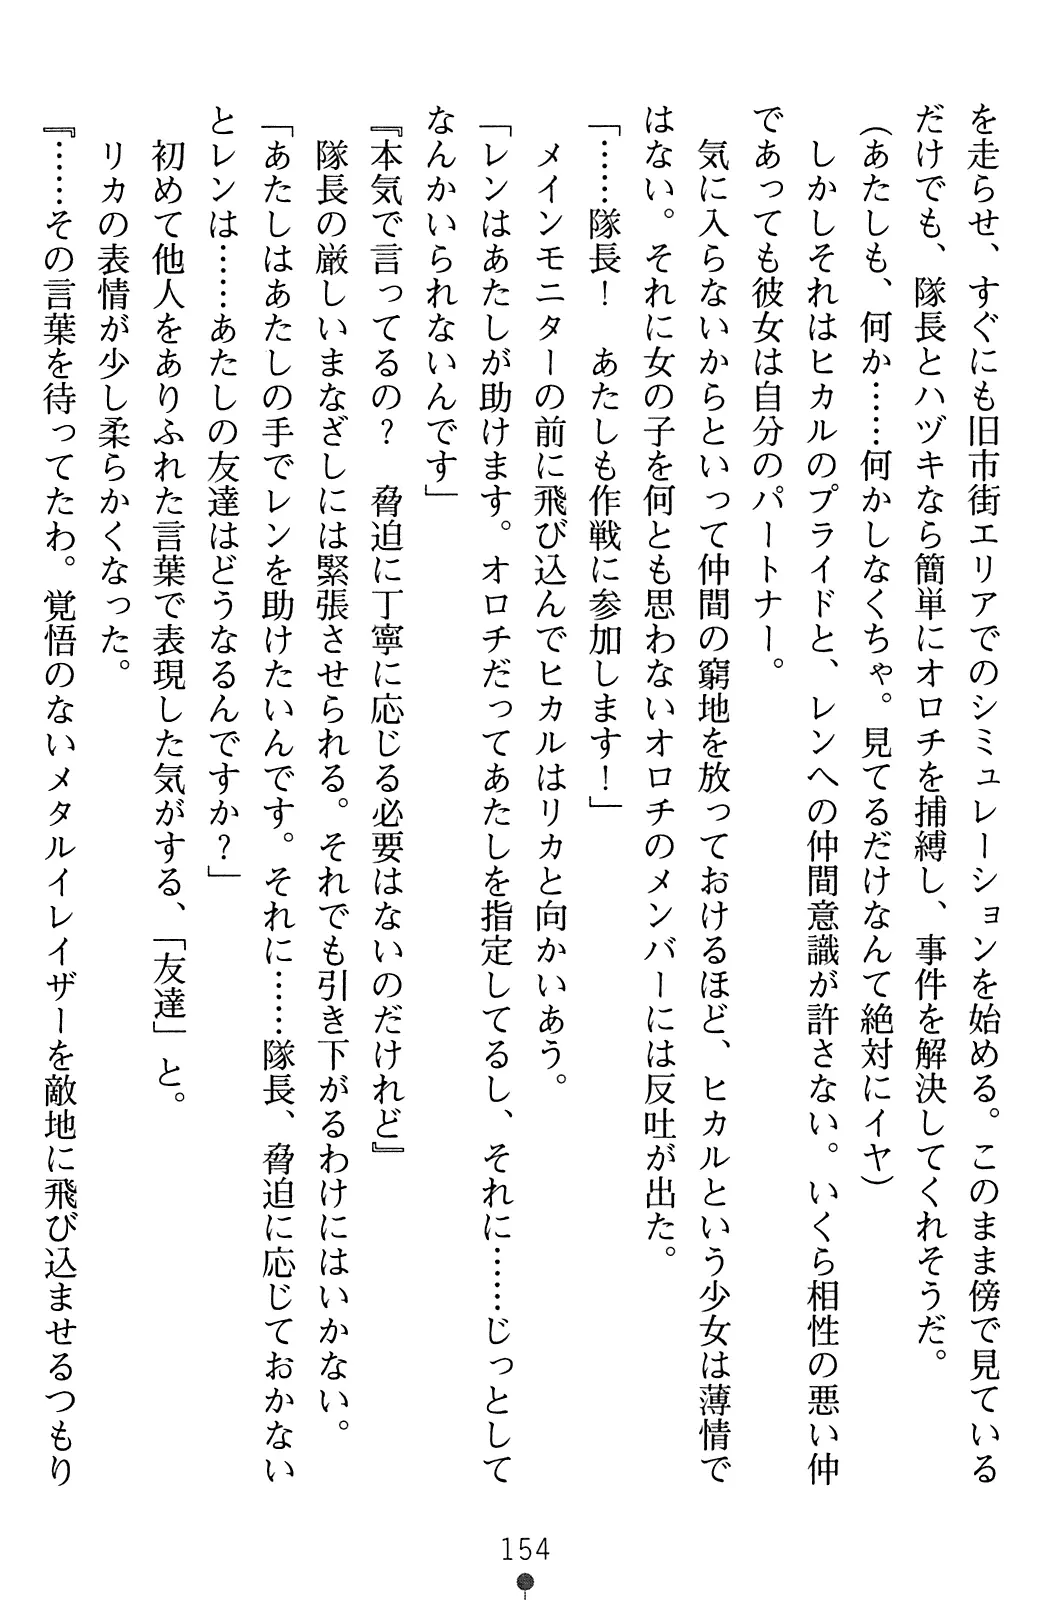 を走らせ、すぐにも旧市街エリアでのシミュレーションを始める。このまま傍で見ている
だけでも、隊長とハヅキなら簡単にオロチを捕縛し、事件を解決してくれそうだ。
（あたしも、何か……何かしなくちゃ。見てるだけなんて絶対にイヤ）
しかしそれはヒカルのプライドと、レンへの仲間意識が許さない。いくら相性の悪い仲
であっても彼女は自分のパートナー。
気に入らないからといって仲間の窮地を放っておけるほど、ヒカルという少女は薄情で
はない。それに女の子を何とも思わないオロチのメンバーには反吐が出た。
「……隊長！　あたしも作戦に参加します！」
メインモニターの前に飛び込んでヒカルはリカと向かいあう。
「レンはあたしが助けます。オロチだってあたしを指定してるし、それに……じっとして
なんかいられないんです」
『本気で言ってるの？　脅迫に丁寧に応じる必要はないのだけれど』
隊長の厳しいまなざしには緊張させられる。それでも引き下がるわけにはいかない。
「あたしはあたしの手でレンを助けたいんです。それに……隊長、脅迫に応じておかない
とレンは……あたしの友達はどうなるんですか？」
初めて他人をありふれた言葉で表現した気がする、「友達」と。
リカの表情が少し柔らかくなった。
『……その言葉を待ってたわ。覚悟のないメタルイレイザーを敵地に飛び込ませるつもり
154